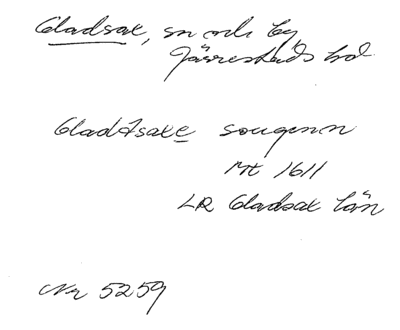 Gladsax, sn och by
Järrestads hd
Gladtsaxe sougenn
Mt 1611
LR Gladsax län
Nr 5259